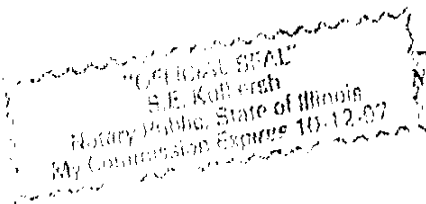 "OFFICIAL SEAL"
S.E.
Notary Public, State of Illinois
My Commission Expires 10-12-07
N